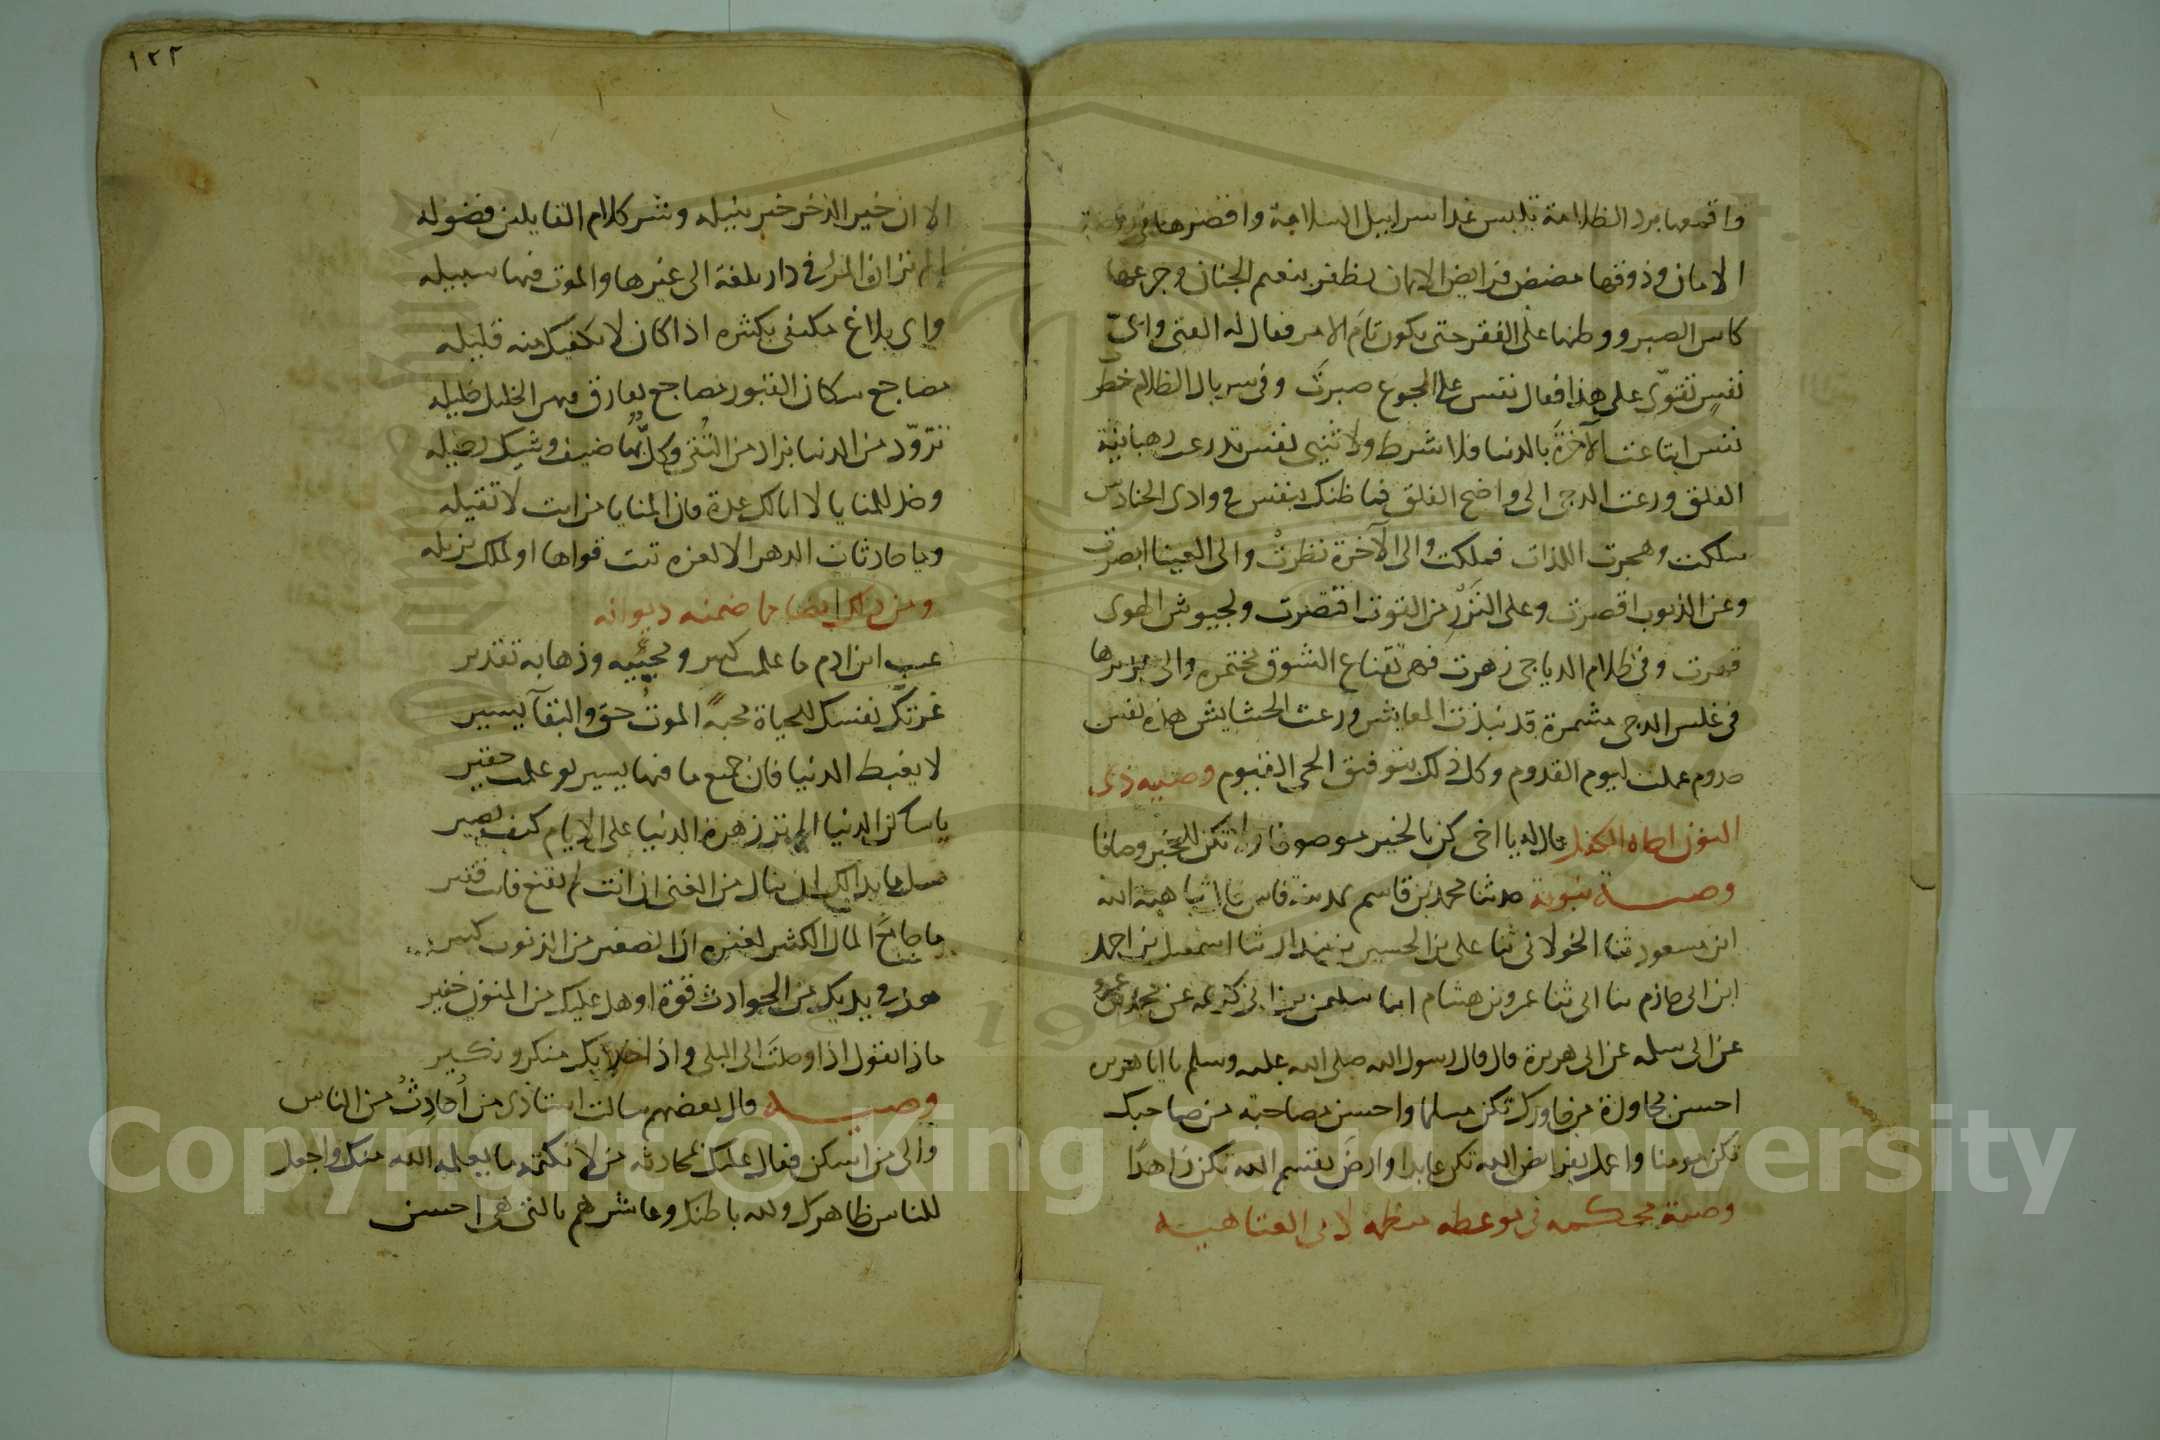 واقمعها برد الظلامة تلبس غدا سرابيل السلامة واقصرها في روضة
الامان وذوقها مضض فرايض الايمان تظفر بنعيم الجنان وجرعها
كاس الصبر ووطنها على الفقر حتى يكون تام الامر فقال له الفتى واي
نفس تقوى على هذا فقال نفس على الجوع صبرت وفي سربال الظلام خطر
نفس ابتاعت الآخرة بالدنيا فلا شرط ولا ثنيى نفس تدرعت رهبانية
القلق ورعت الدجى الى واضح الفلق فما ظنك بنفس في وادي الحنادس
سلكت وهجرت اللذات فملكت والى الآخرة نظرت والى العينا ابصرت
وعن الذنوب اقصرت وعلى النزر من القوت اقتصرت ولجيوش الهوى
قهرت وفي ظلام الدياجي زهرت فهي بقناع الشوق مختمرة والى عزيزها
في غلس الدجى مشمرة قد نبذت المعايش ورعت الحشايش هذه نفس
خدوم عملت ليوم القدوم وكل ذلك بتوفيق الحي القيوم وصيه ذي
النون اخاه الكفل قال له يا اخي كن بالخير موصوفا ولا تكن للخير وصافا
وصية نبوية حدثنا محمد بن قاسم بمدينة فاس قال ثنا هبة الله
ابن مسعود ثنا الخولاني ثنا علي بن الحسين بن بندار ثنا اسمعيل بن احمد
ابن ابي حازم ثنا ابي ثنا عمرو بن هشام انبا سليمن بن ابي كريمة عن محمد بن عمرو
عن ابي سلمه عن ابي هريرة قال قال رسول الله صلى الله عليه وسلم يا ابا هريره
احسن مجاورة من جاورك تكن مسلما واحسن مصاحبة من صاحبك
تكن مومنا واعمل بفرايض الله تكن عابدا وارض بقسم الله تكن زاهدًا
وصية محكمه في موعظه منظمه لابي العتاهية
١٢٣
الا ان خير الذخر خير ينيله وشر كلام القايلين فضوله
الم تر ان المرء في دار بلغة الى غيرها والموت فيها سبيله
واي بلاغ يكتفى بكثيره اذا كان لا يكفيك منه قليله
مضاجع سكان القبور مضاجع يفارق فيهن الخليل خليله
تزود من الدنيا بزاد من التقى وكل بها ضيف وشيك رحيله
وخذ للمنايا لا ابا لك عدة فان المنايا من اتت لا تقيله
وما حادثات الدهر الا لعزه تبت قواها او لملك تزيله
ومن ذلك ايضا مما ضمنه ديوانه
عيب ابن ادم ما علمت كبير ومجيئيه وذهابه تقدير
غرتك نفسك للحياة محبة الموت حق والبقآ يسير
لا يغبط الدنيا فان جميع ما فيها يسير لو علمت حقير
يا ساكن الدنيا الم تر زهرة الدنيا على الايام كيف تصير
سل ما بدا لك ان تنال من الغنى ان انت لم تقنع فانت فقير
يا جامع المال الكثير لغيره ان الصغير من الذنوب كبير
هل في يديك من الحوادث قوة او هل عليك من المنون خفير
ماذا تقول اذا وصلت الى البلى واذا خلا بك منكر ونكير
وصيــه قال بعضهم سالت استاذي من أحادِثُ من الناس
والى من اسكن فقال عليك بمحادثه من لا تكتمه ما يعلمه الله منك واجعل
للناس ظاهرك ولله باطنك وعاشرهم بالتي هي احسن